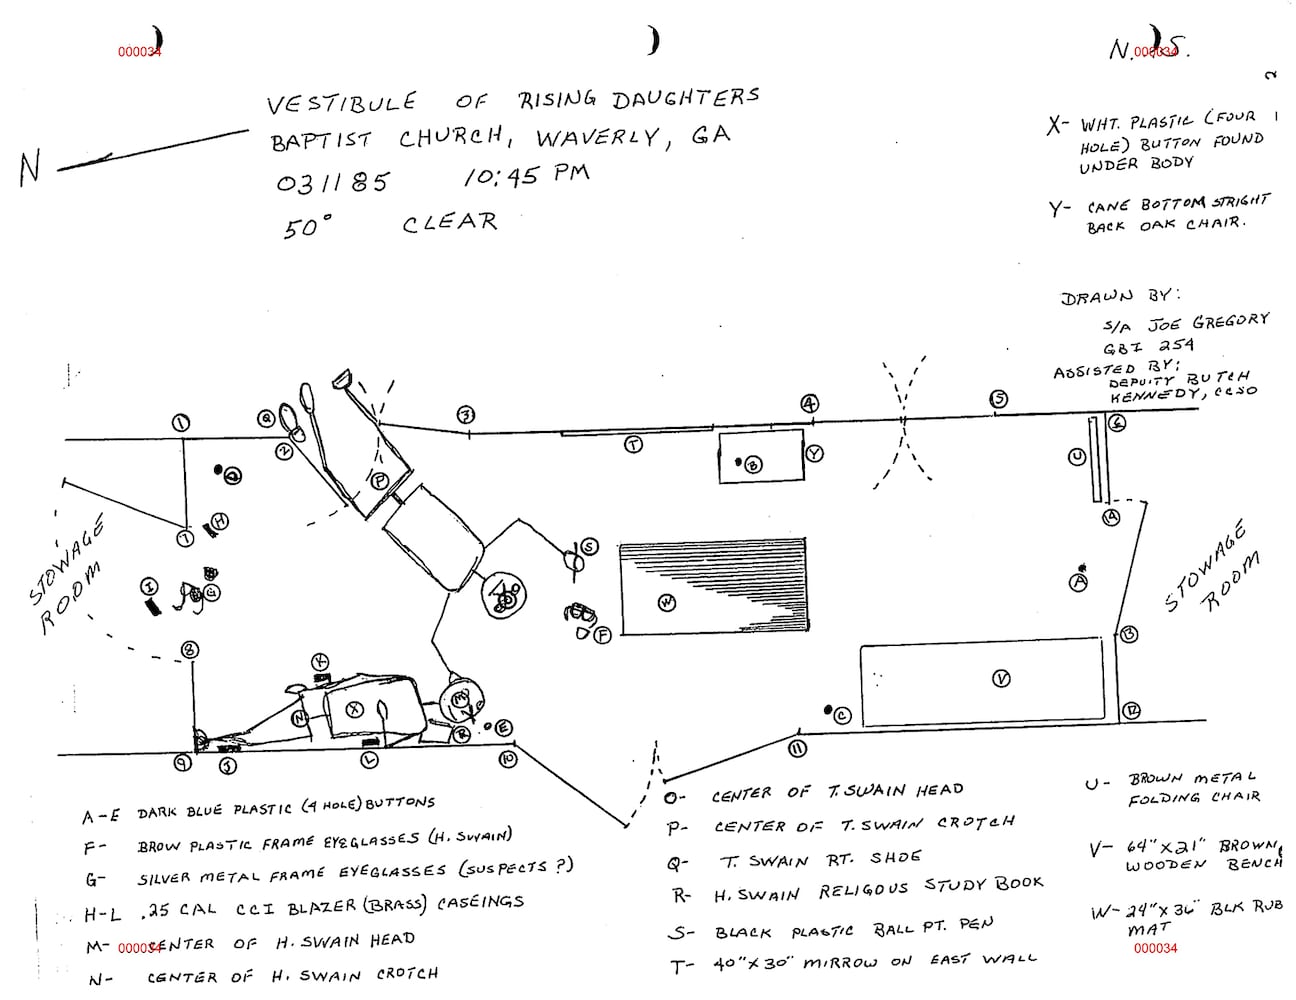 000034
000034
N. S.
2
VESTIBULE OF RISING DAUGHTERS
BAPTIST CHURCH, WAVERLY, GA
031185 10:45 PM
50° CLEAR
N
X- WHT. PLASTIC (FOUR 1
HOLE) BUTTON FOUND
UNDER BODY
Y- CANE BOTTOM STRIGHT
BACK OAK CHAIR.
DRAWN BY:
S/A JOE GREGORY
GBI 254
ASSISTED BY:
DEPUITY BUTCH
KENNEDY, CCSO
1
Q
2
3
4
5
6
T
B
Y
U
P
D
H
7
14
STOWAGE
ROOM
I
G
S
O
F
W
A
STOWAGE
ROOM
8
K
13
N
X
M
V
R
E
C
12
9
J
L
10
11
A-E DARK BLUE PLASTIC (4 HOLE) BUTTONS
F- BROW PLASTIC FRAME EYEGLASSES (H. SWAIN)
G- SILVER METAL FRAME EYEGLASSES (SUSPECTS ?)
H-L .25 CAL CCI BLAZER (BRASS) CASEINGS
M- CENTER OF H. SWAIN HEAD
000034
N- CENTER OF H. SWAIN CROTCH
O- CENTER OF T. SWAIN HEAD
P- CENTER OF T. SWAIN CROTCH
Q- T. SWAIN RT. SHOE
R- H. SWAIN RELIGOUS STUDY BOOK
S- BLACK PLASTIC BALL PT. PEN
T- 40"X30" MIRROW ON EAST WALL
U- BROWN METAL
FOLDING CHAIR
V- 64"X21" BROWN
WOODEN BENCH
W- 24"X36" BLK RUB
MAT
000034